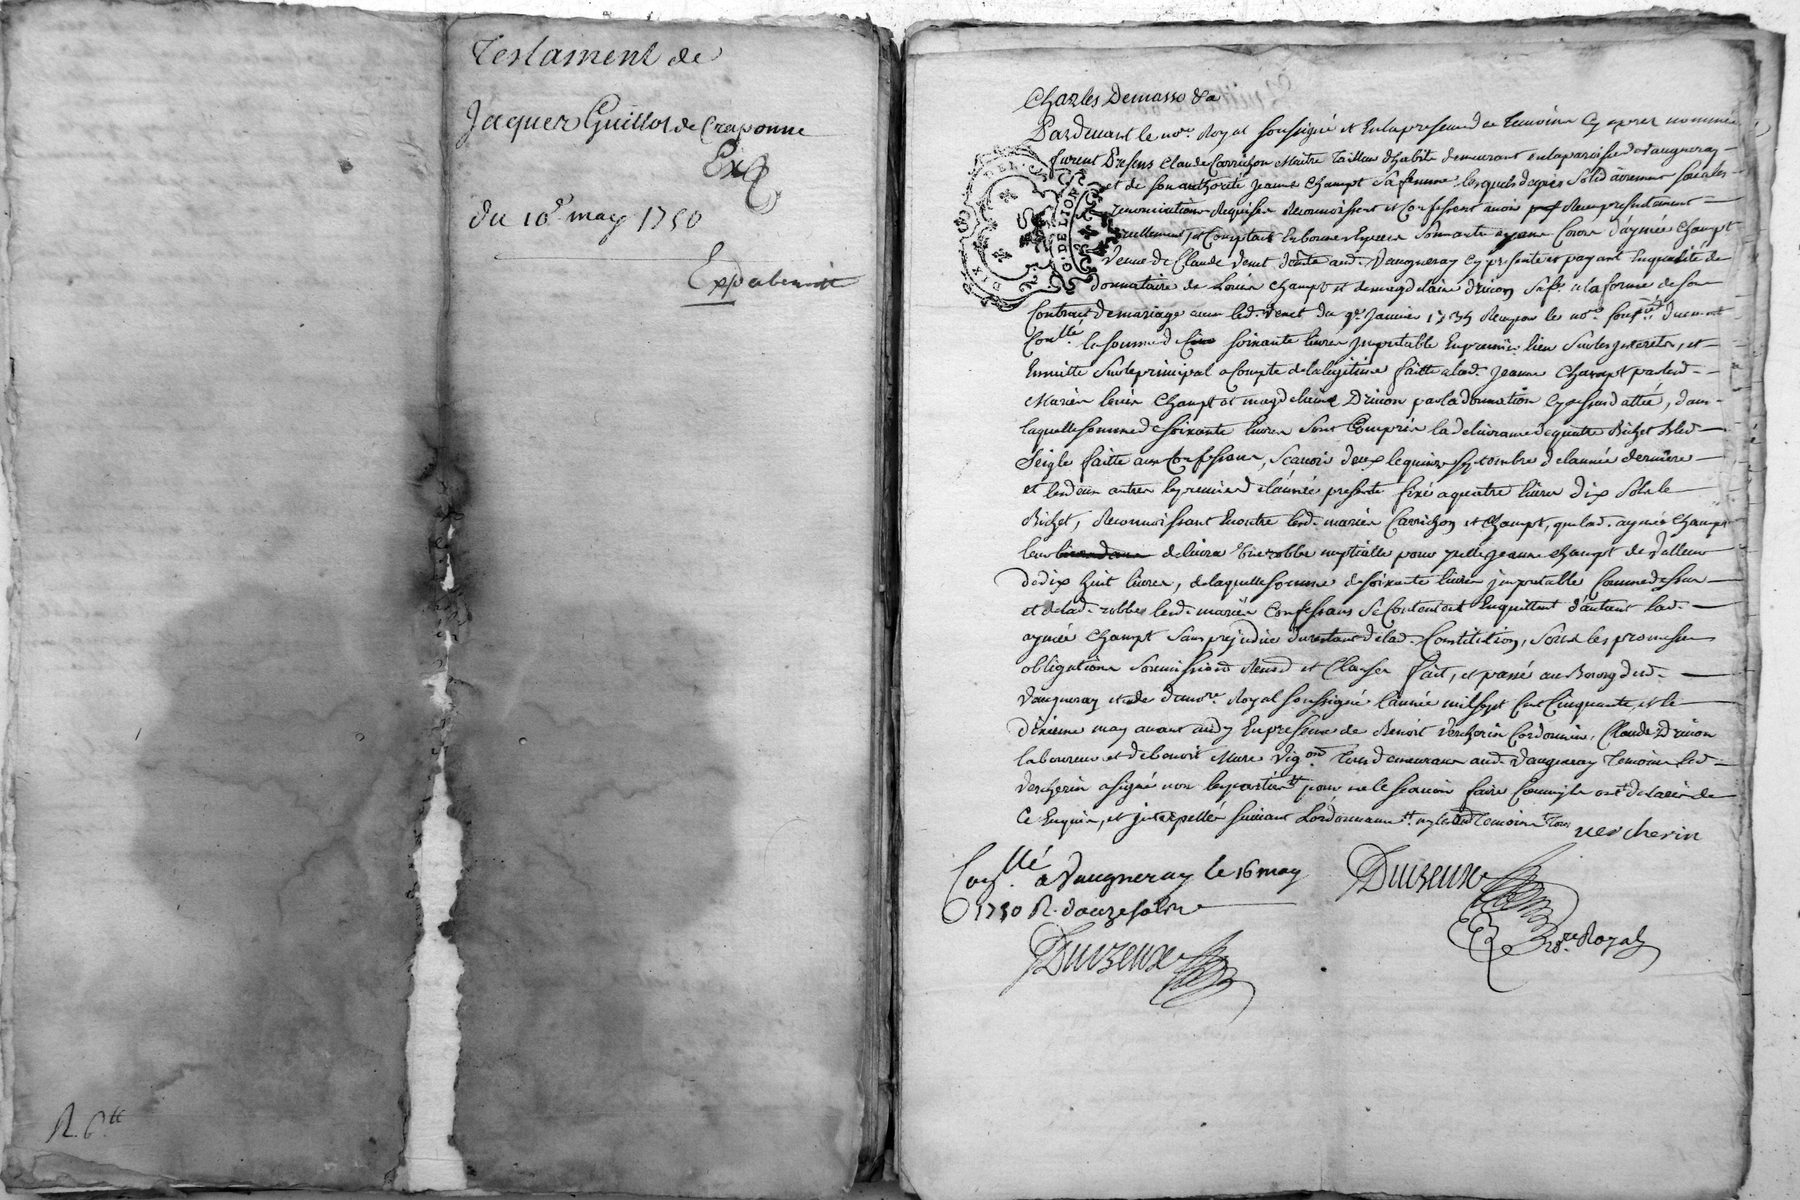 Testament de
Jaques Guillot de Craponne
Ex
du 10e may 1750
Exp
R. 6tt
Charles Demasso &a
Pardevant le nore Royal soussigné et en la presence de Temoins Cy aprez nommés
furent Presens Claude Carrichon Maitre Tailleur d'habits demeurant en la paroisse de Vaugneray
et de son authorité Jeanne Champt sa femme lesquels de gré solidairement soûs les
renonciations Requises Reconnoissent et Confessent avoir Reçu presentement
reellement et Comptant En bonnes Especes Sonnantes d'aymée Champt
Veuve de Claude Venet de aud. Vaugneray Cy presente et payant En qualité de
donnataire de Louis Champt et de magdelaine Drivon sa fe. a la forme de son
Contract de mariage avec led. Venet du 9e Janvier 1735 Reçu par le nore soussigné duement
Conllé la somme de soixante livres Imputable En premier lieu Sur les Interets, et
Ensuitte Sur le principal a Compte de la legitime faitte a lad. Jeanne Champt par lesd.
Mariés Louis Champt et magdelaine Drivon par la donnation Cy dessus dattée, dans
laquelle somme de soixante livres sont Compris la delivrance de quatre Bichet Bled
Seigle faitte aux Confessans, scavoir deux le quinze septembre de l'année derniere
et les deux autres le premier de l'année presente fixé a quatre livres dix sols le
Bichet, Reconnoissant Encontre lesd. mariés Carrichon et Champt, que lad. aymée Champt
leur delivra Une robbe nuptialle pour Jcelle Jeanne Champt de Valleur
de dix huit livres, de laquelle somme de soixante livres Imputable Comme dessus
et de lad. robbe lesd. mariés Confessans se Contentent En quittent d'autant lad.
aymée Champt sans prejudice du restant de lad. Constitution, sous les promesses
obligations soumissions Renon et Clauses fait, et passé au Bourg dud.
Vaugneray etude du nore Royal soussigné l'année mil sept Cent Cinquante, et le
dixieme may avant midy En presence de Benoit Vercherin Cordonnier, Claude Drivon
laboureur et de benoit Mure Vigon Tous demeurans aud. Vaugneray Temoins led.
Vercherin a signé non les parties pour ne le scavoir faire Comm'ils ont declairé de
Ce Enquis, et jnterpellés suivant L'ordonnance
vercherin
Conllé a Vaugneray le 16 may
1750 R. douze sols
Duizeux
Duizeux
nore Royal